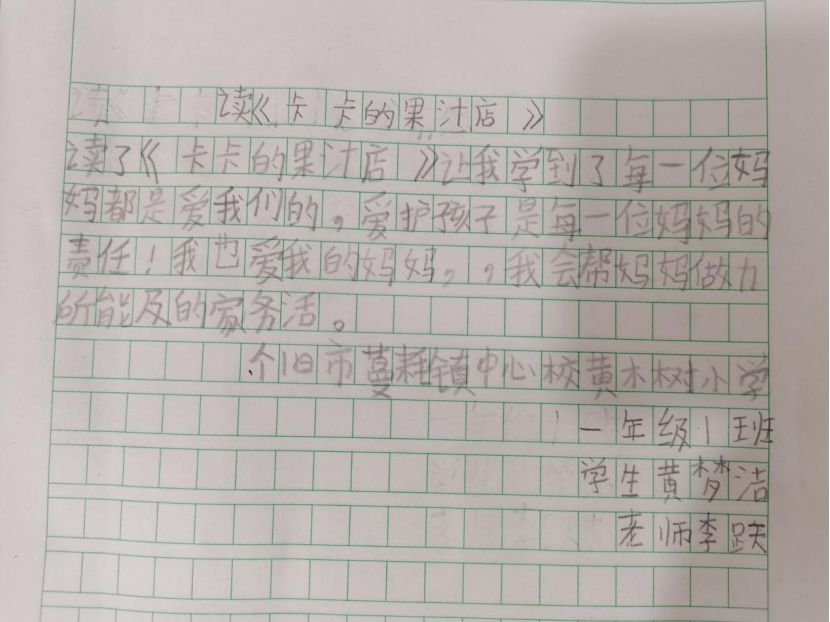 读《卡卡的果汁店》
读了《卡卡的果汁店》让我学到了每一位妈
妈都是爱我们的。爱护孩子是每一位妈妈的
责任！我也爱我的妈妈，，我会帮妈妈做力
所能及的家务活。
个旧市蔓耗镇中心校黄木树小学
一年级1班
学生黄梦洁
老师李跃